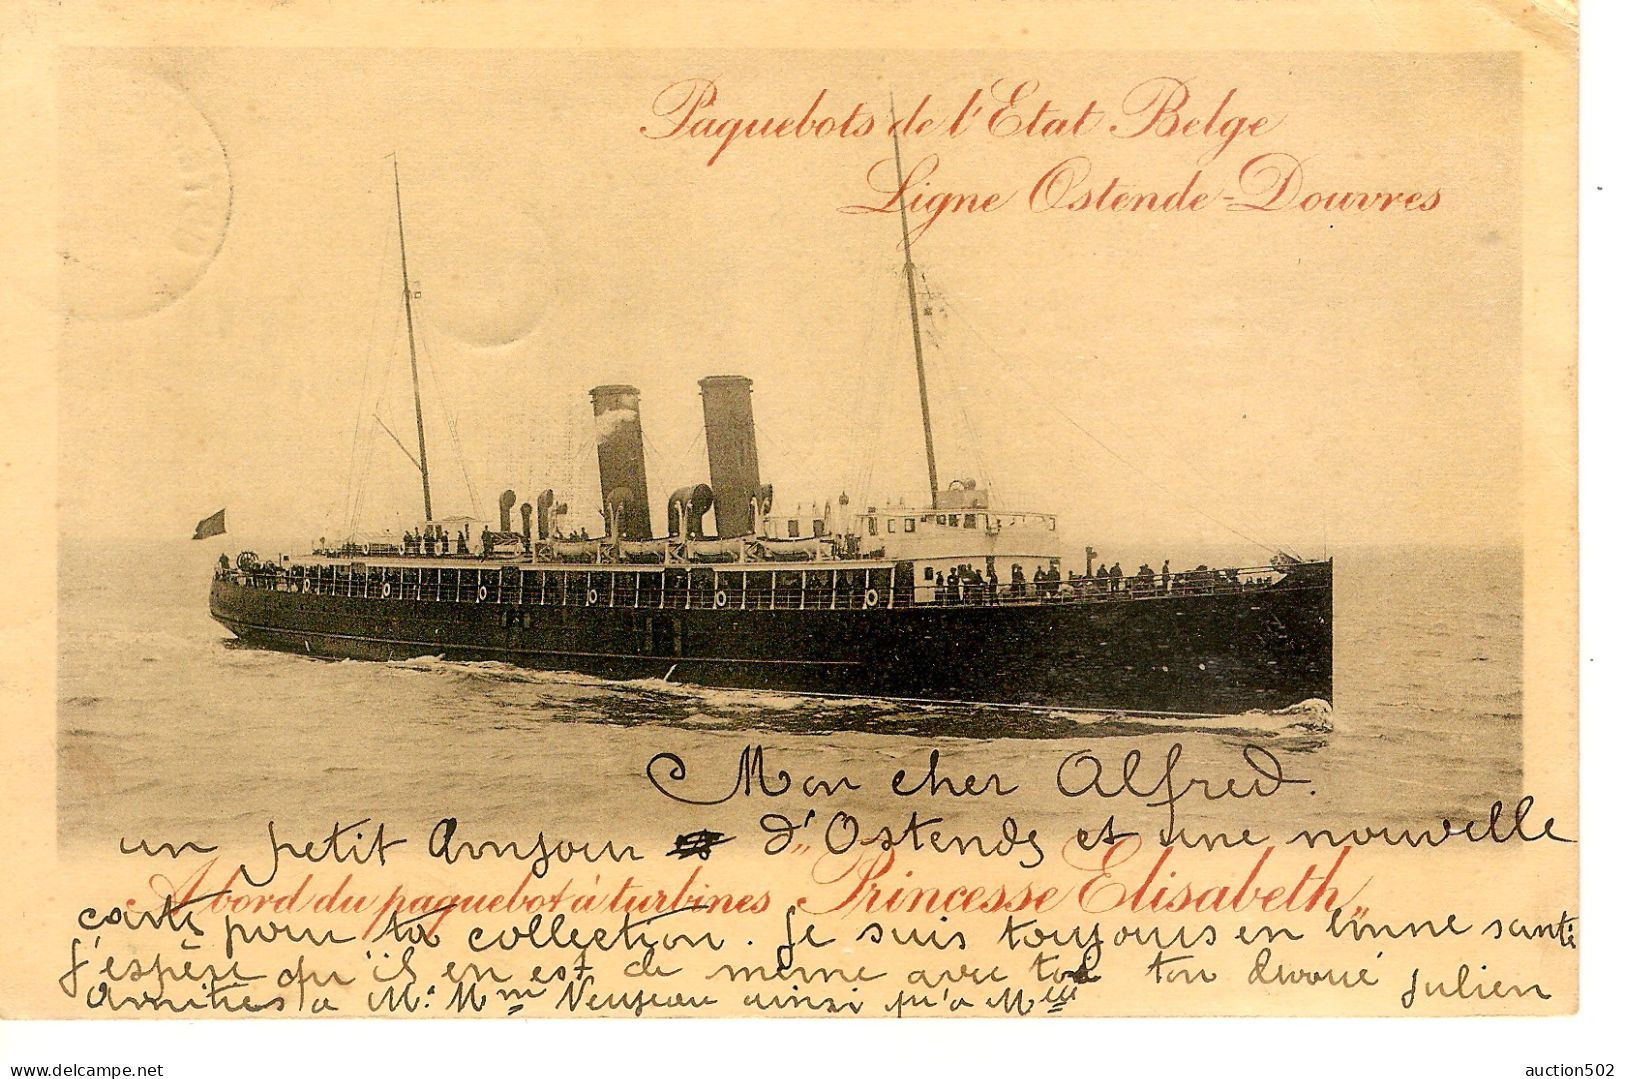 Paquebots de l'Etat Belge
Ligne Ostende-Douvres
Mon cher Alfred.
un petit Bonjour d'Ostende et une nouvelle
A bord du paquebot à turbines „Princesse Elisabeth„
carte pour ta collection. Je suis toujours en bonne santé
J'espère qu'il en est de même avec toi ton dévoué Julien
Amitiés a Mr Mme ainsi qu'a Melle
https://www.delcampe.net
auction502